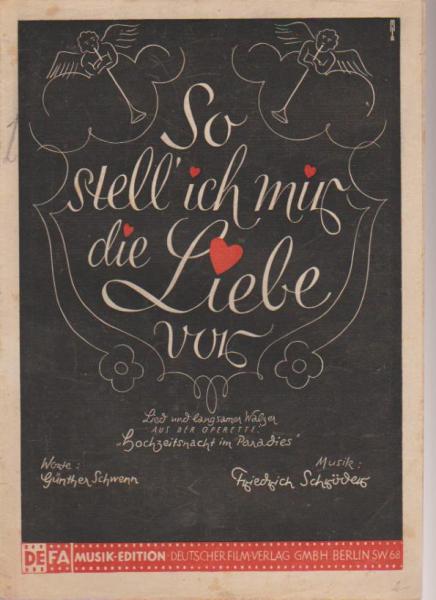 So
stell' ich mir
die Liebe
vor
Lied und langsamer Walzer
AUS DER OPERETTE:
„Hochzeitsnacht im Paradies"
Worte:
Günther Schwenn
Musik:
Friedrich Schröder
DEFA MUSIK-EDITION DEUTSCHER FILM-VERLAG GMBH BERLIN SW 68